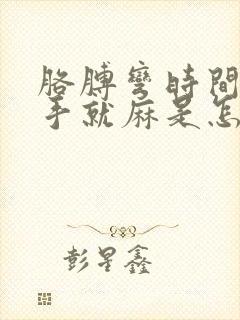 胳膊彎時間
手就麻是怎
彭星鑫